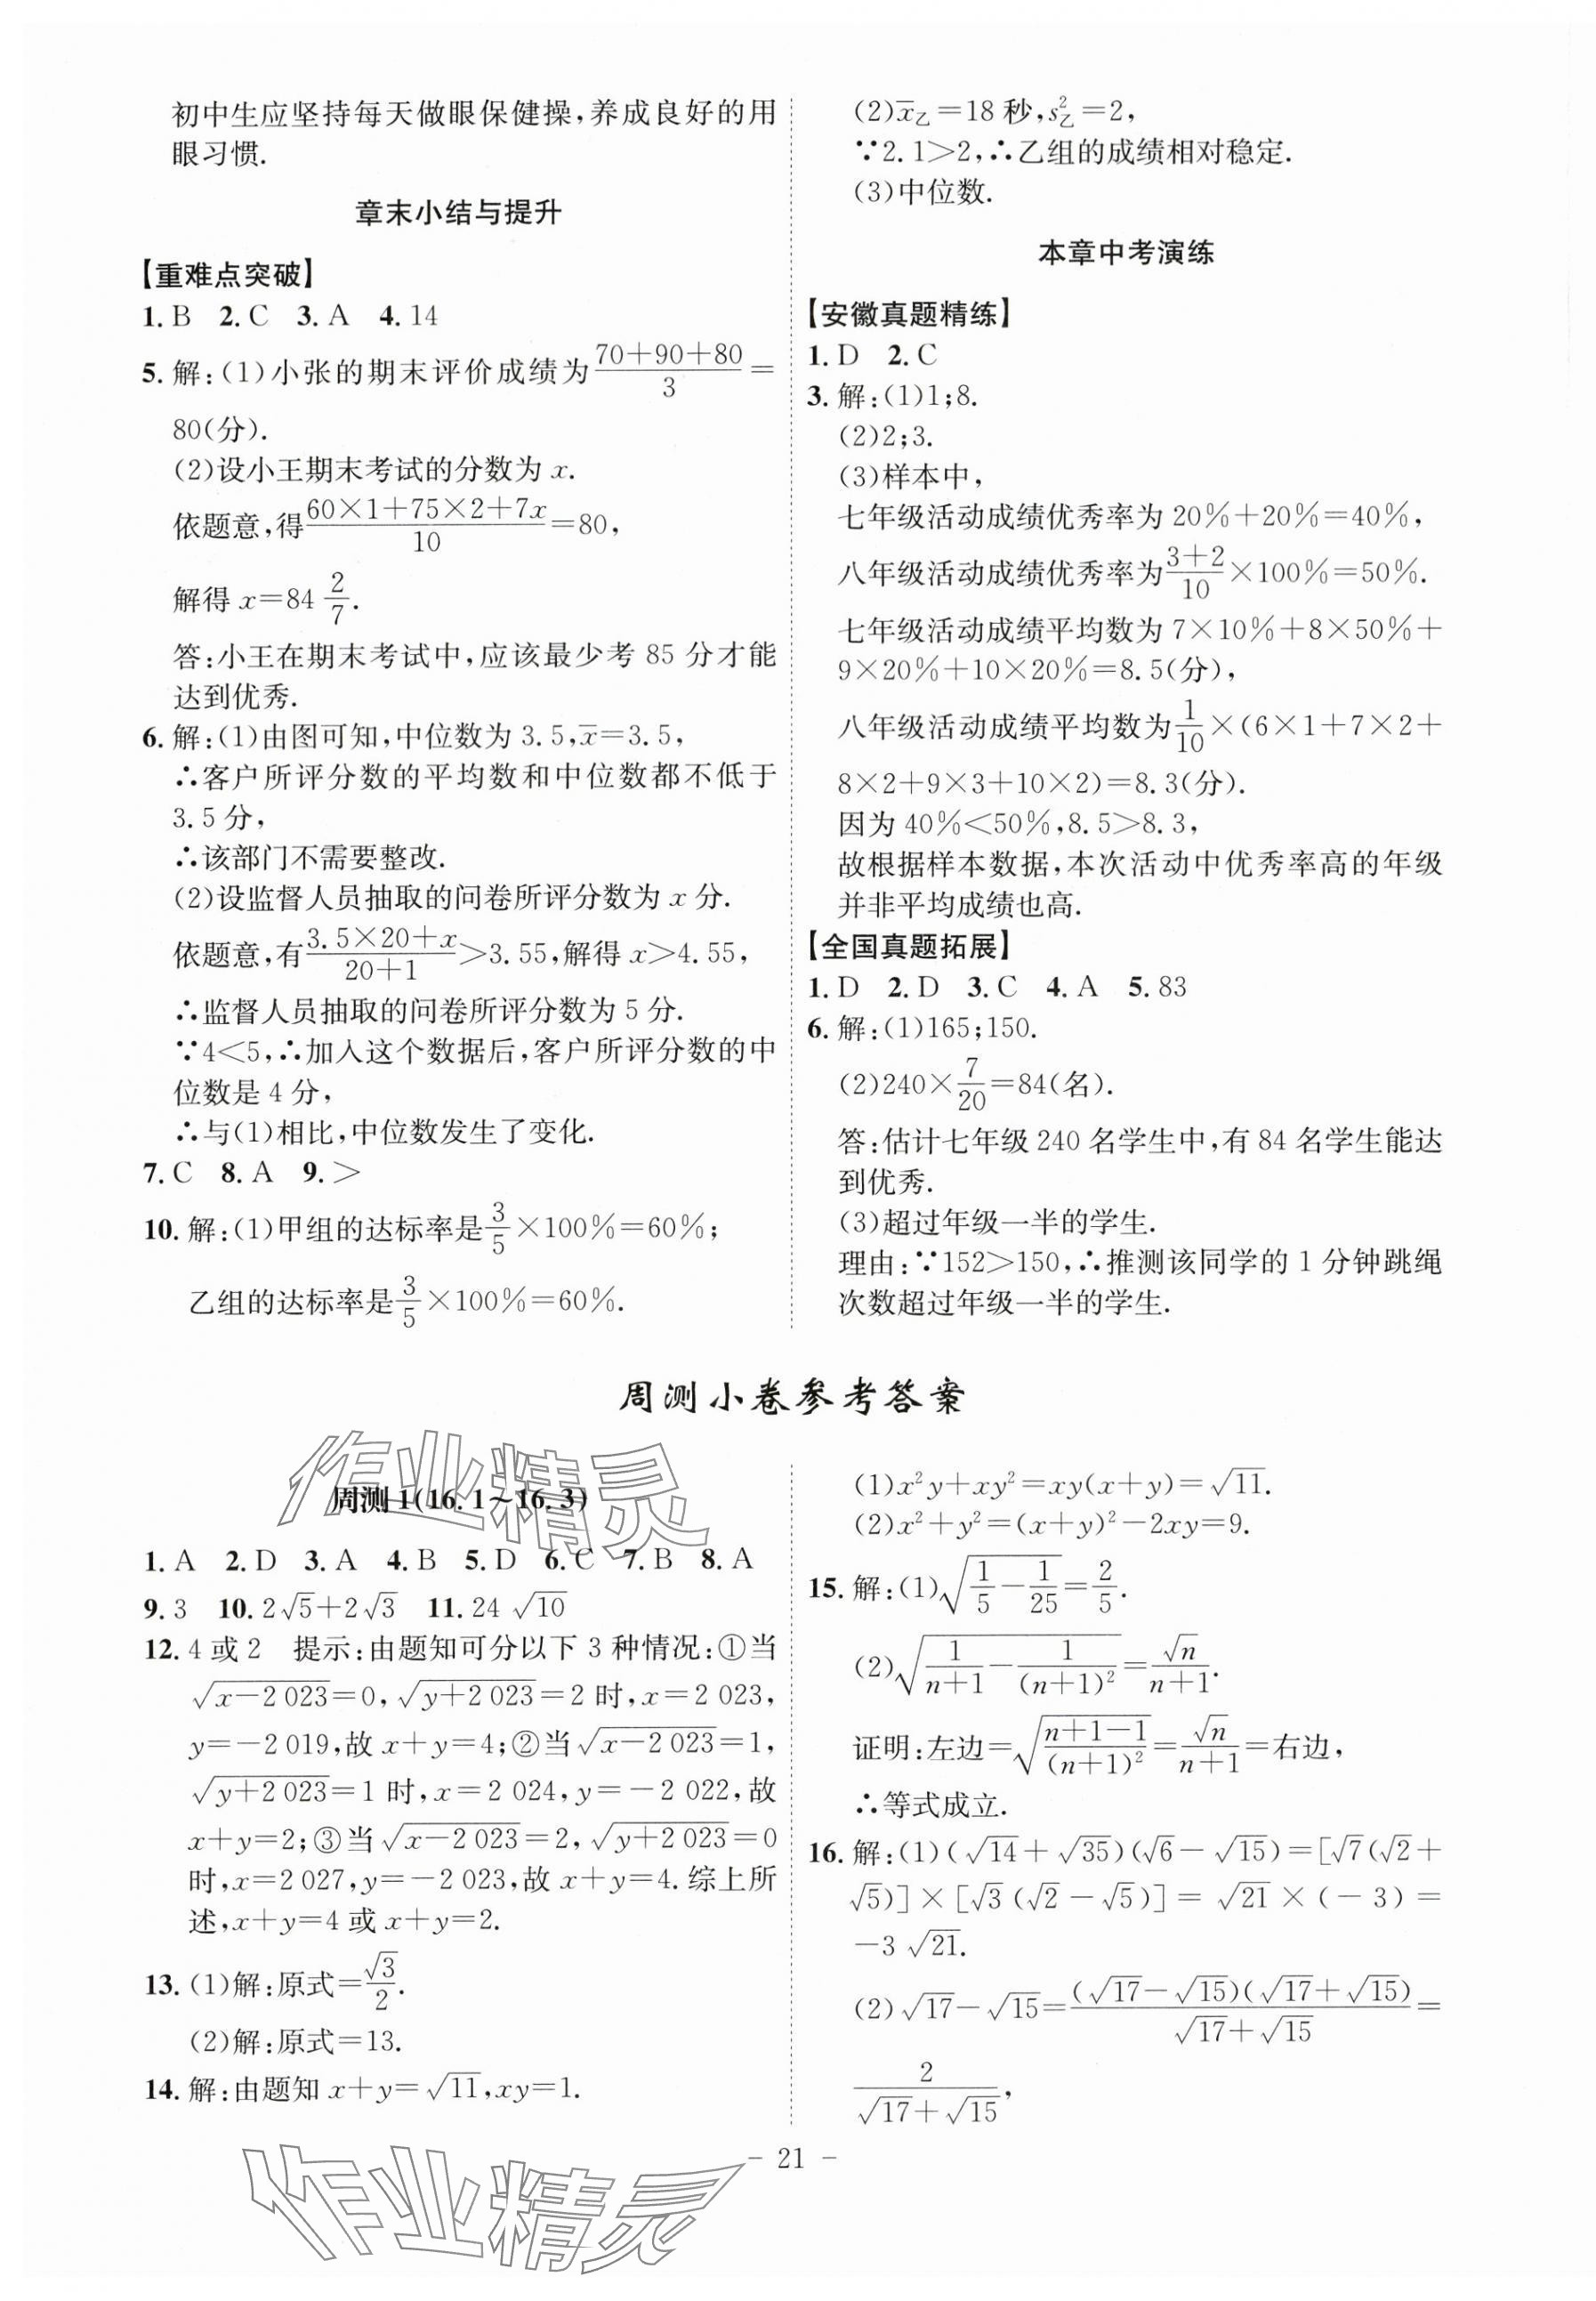 初中生应坚持每天做眼保健操,养成良好的用
眼习惯.
章末小结与提升
【重难点突破】
1. B 2. C 3. A 4. 14
5. 解:(1)小张的期末评价成绩为$\frac{70+90+80}{3}$=
80(分).
(2)设小王期末考试的分数为 x.
依题意,得$\frac{60×1+75×2+7x}{10}$=80,
解得 x=84$\frac{2}{7}$.
答:小王在期末考试中,应该最少考 85 分才能
达到优秀.
6. 解:(1)由图可知,中位数为 3.5,$\overline{x}$=3.5,
∴客户所评分数的平均数和中位数都不低于
3.5 分,
∴该部门不需要整改.
(2)设监督人员抽取的问卷所评分数为 x 分.
依题意,有$\frac{3.5×20+x}{20+1}$>3.55,解得 x>4.55,
∴监督人员抽取的问卷所评分数为 5 分.
∵4<5,∴加入这个数据后,客户所评分数的中
位数是 4 分,
∴与(1)相比,中位数发生了变化.
7. C 8. A 9. >
10. 解:(1)甲组的达标率是$\frac{3}{5}$×100%=60%;
乙组的达标率是$\frac{3}{5}$×100%=60%.
(2)$\overline{x}_乙$=18 秒,$s_乙^2$=2,
∵2.1>2,∴乙组的成绩相对稳定.
(3)中位数.
本章中考演练
【安徽真题精练】
1. D 2. C
3. 解:(1)1;8.
(2)2;3.
(3)样本中,
七年级活动成绩优秀率为 20%+20%=40%,
八年级活动成绩优秀率为$\frac{3+2}{10}$×100%=50%.
七年级活动成绩平均数为 7×10%+8×50%+
9×20%+10×20%=8.5(分),
八年级活动成绩平均数为$\frac{1}{10}$×(6×1+7×2+
8×2+9×3+10×2)=8.3(分).
因为 40%<50%,8.5>8.3,
故根据样本数据,本次活动中优秀率高的年级
并非平均成绩也高.
【全国真题拓展】
1. D 2. D 3. C 4. A 5. 83
6. 解:(1)165;150.
(2)240×$\frac{7}{20}$=84(名).
答:估计七年级 240 名学生中,有 84 名学生能达
到优秀.
(3)超过年级一半的学生.
理由:∵152>150,∴推测该同学的 1 分钟跳绳
次数超过年级一半的学生.
周测小卷参考答案
作业精灵
周测 1(16.1~16.3)
1. A 2. D 3. A 4. B 5. D 6. C 7. B 8. A
9. 3 10. 2$\sqrt{5}$+2$\sqrt{3}$ 11. 24 $\sqrt{10}$
12. 4 或 2 提示:由题知可分以下 3 种情况:①当
$\sqrt{x-2 023}$=0,$\sqrt{y+2 023}$=2 时,x=2 023,
y=-2 019,故 x+y=4;②当$\sqrt{x-2 023}$=1,
$\sqrt{y+2 023}$=1 时,x=2 024,y=-2 022,故
x+y=2;③当$\sqrt{x-2 023}$=2,$\sqrt{y+2 023}$=0
时,x=2 027,y=-2 023,故 x+y=4.综上所
述,x+y=4 或 x+y=2.
13. (1)解:原式=$\frac{\sqrt{3}}{2}$.
(2)解:原式=13.
14. 解:由题知 x+y=$\sqrt{11}$,xy=1.
(1)$x^2y+xy^2$=xy(x+y)=$\sqrt{11}$.
(2)$x^2+y^2=(x+y)^2-2xy$=9.
15. 解:(1)$\sqrt{\frac{1}{5}-\frac{1}{25}}=\frac{2}{5}$.
(2)$\sqrt{\frac{1}{n+1}-\frac{1}{(n+1)^2}}=\frac{\sqrt{n}}{n+1}$.
证明:左边=$\sqrt{\frac{n+1-1}{(n+1)^2}}=\frac{\sqrt{n}}{n+1}$=右边,
∴等式成立.
16. 解:(1)($\sqrt{14}$+$\sqrt{35}$)($\sqrt{6}$-$\sqrt{15}$)=[$\sqrt{7}$($\sqrt{2}$+
$\sqrt{5}$)]×[$\sqrt{3}$($\sqrt{2}$-$\sqrt{5}$)]=$\sqrt{21}$×(-3)=
-3$\sqrt{21}$.
(2)$\sqrt{17}$-$\sqrt{15}$=$\frac{(\sqrt{17}-\sqrt{15})(\sqrt{17}+\sqrt{15})}{\sqrt{17}+\sqrt{15}}$=
$\frac{2}{\sqrt{17}+\sqrt{15}}$,
- 21 -
作业精灵